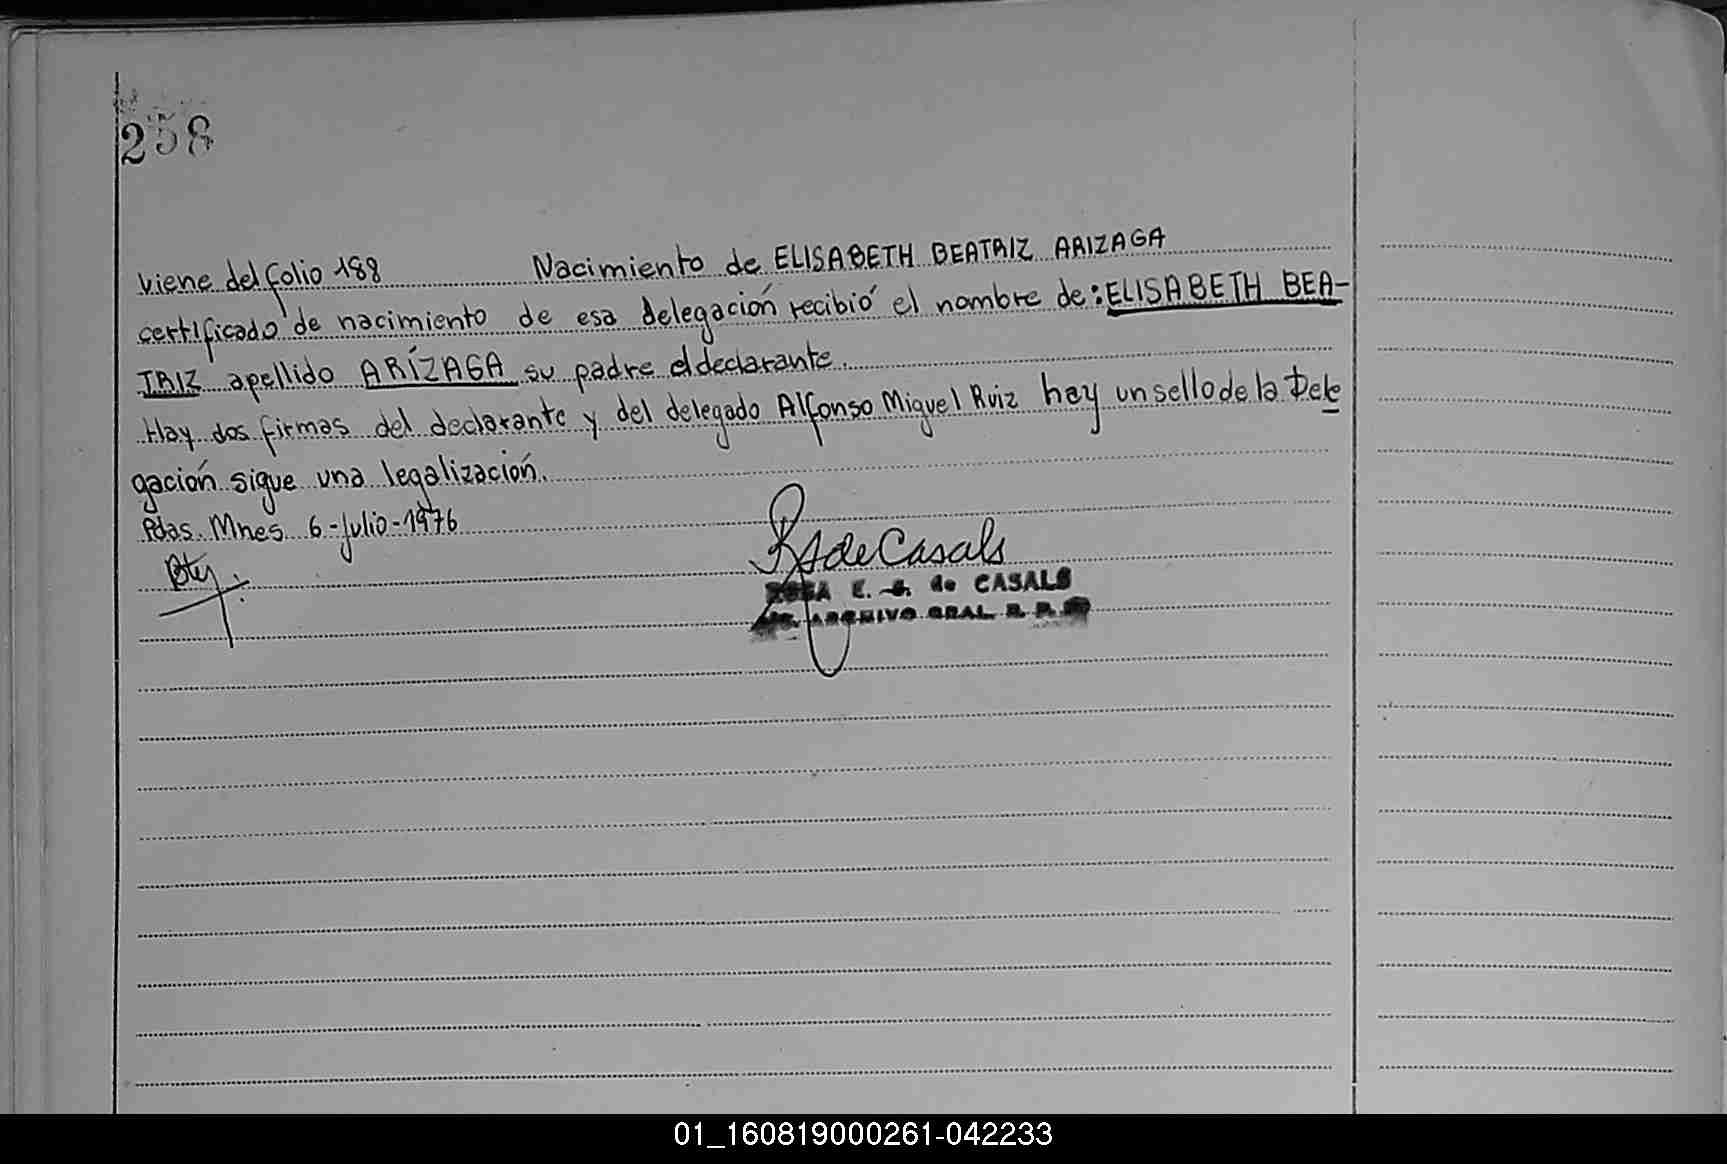 258
viene del folio 188 Nacimiento de ELISABETH BEATRIZ ARIZAGA
certificado de nacimiento de esa delegación recibió el nombre de: ELISABETH BEA-
TRIZ apellido ARÍZAGA su padre el declarante.
Hay dos firmas del declarante y del delegado Alfonso Miguel Ruiz hay un sello de la Dele
gación sigue una legalización.
Pdas. Mnes 6-Julio-1976
RS de Casals
ROSA E. S. de CASALS
ARCHIVO GRAL. R. P.
01_160819000261-042233